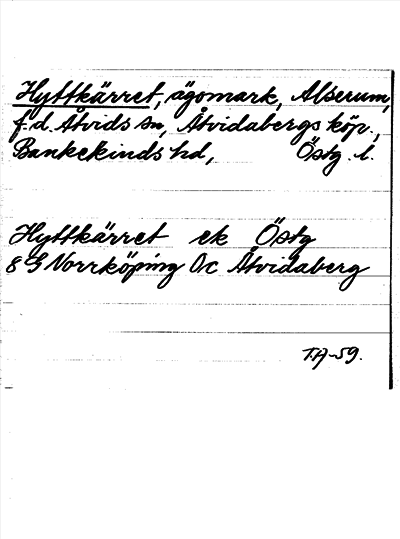 Hyttkärret, ägomark, Alserum,
f.d. Åtvids sn, Åtvidabergs köp.,
Bankekinds hd, Östg. l.
Hyttkärret ek Östg
8 G Norrköping 0c Åtvidaberg
T.A-59.